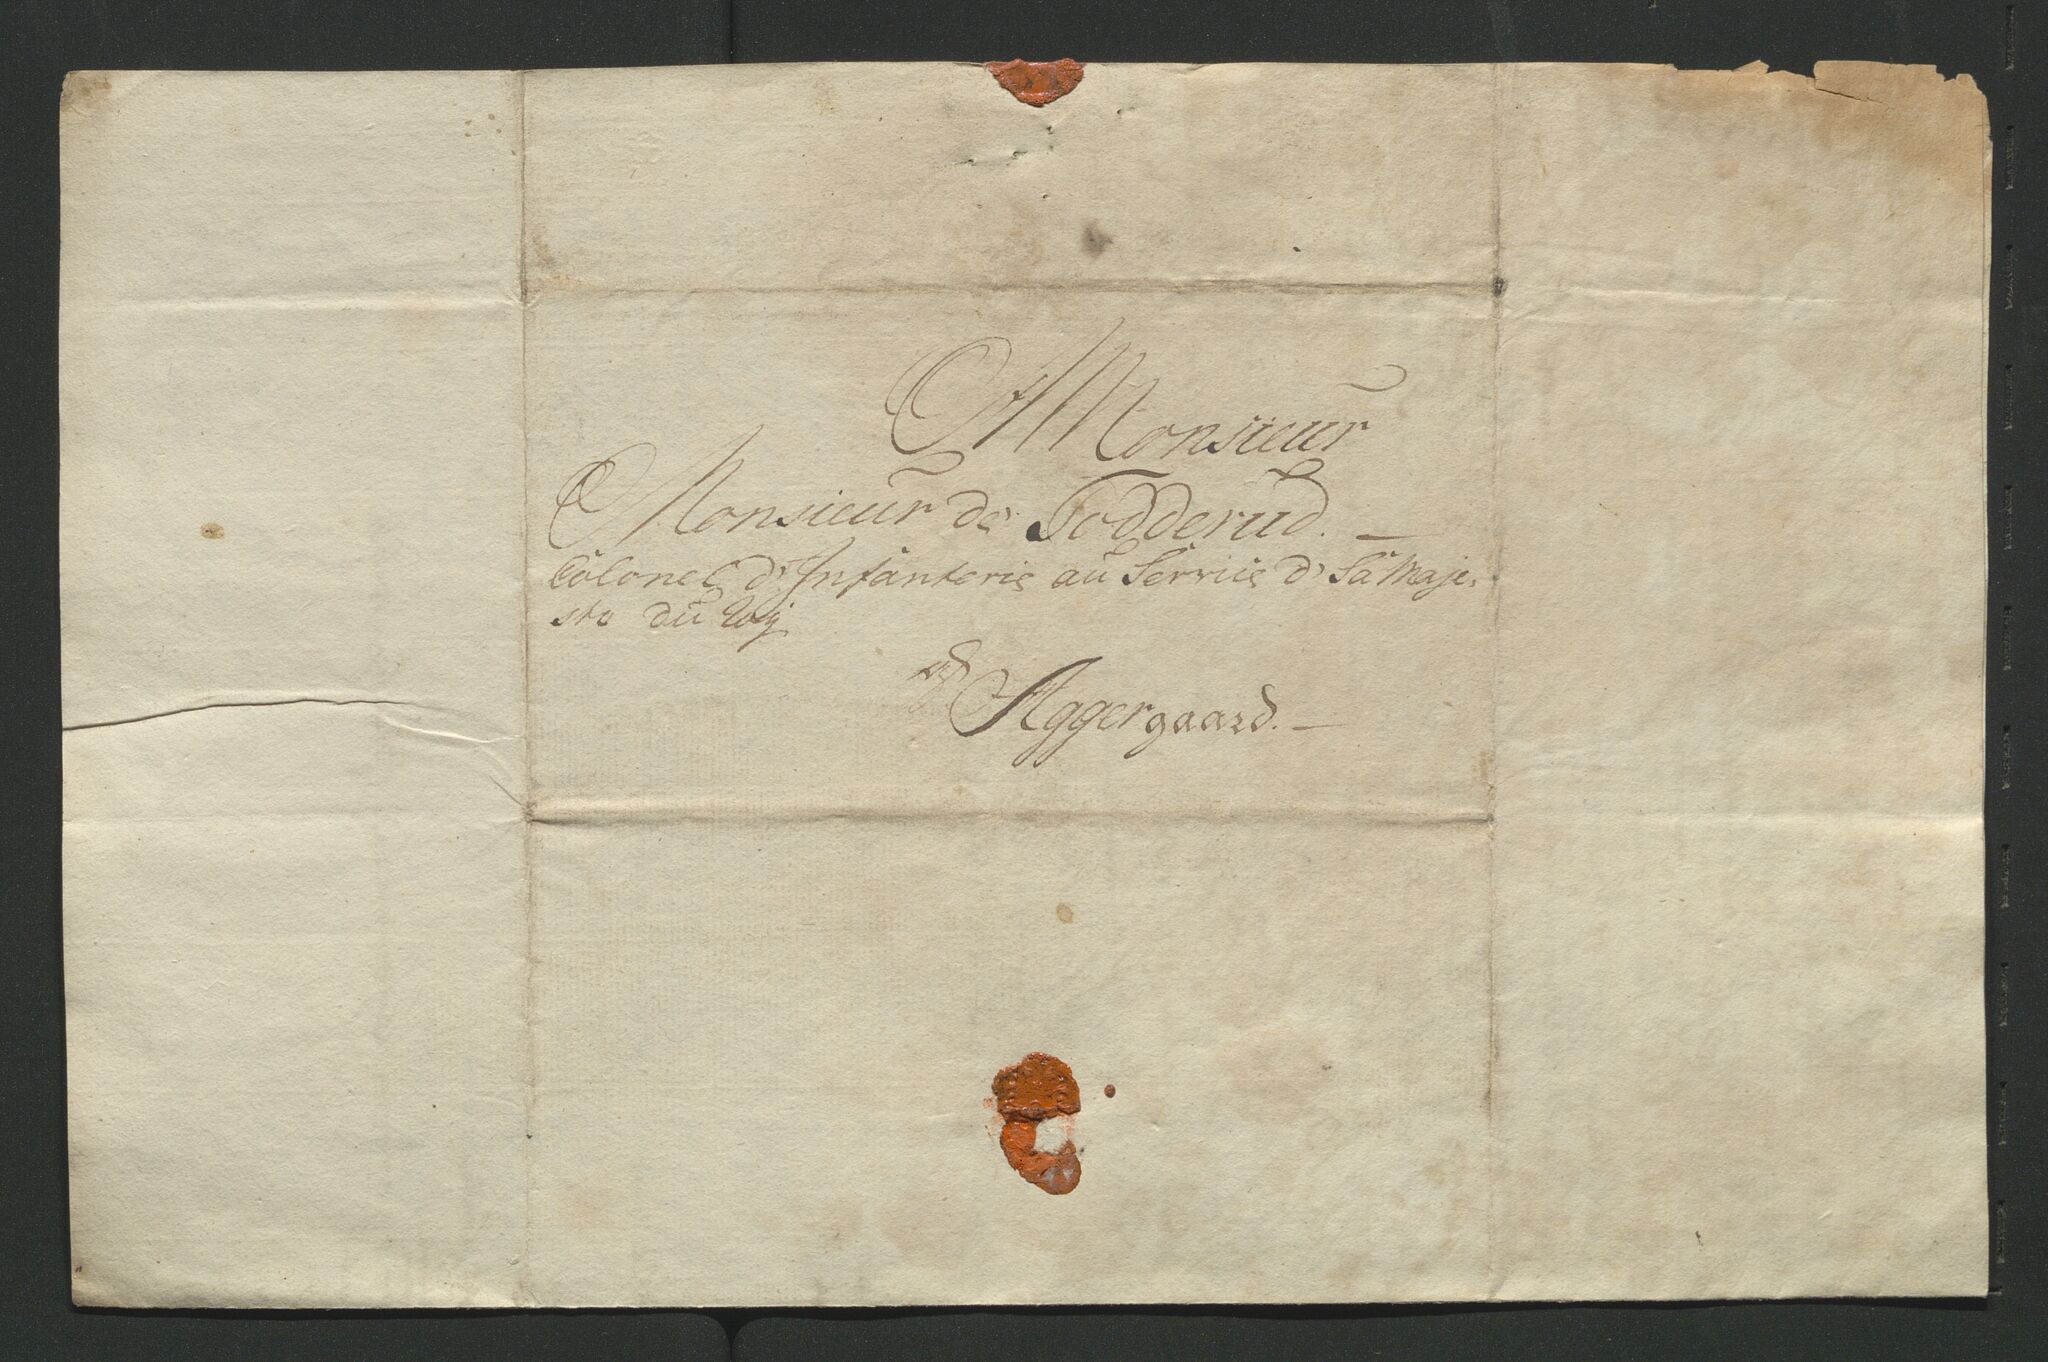 A Monsieur
Monsieur de Todderud.
Colonel d'Infanterie au Service d' Sa Maje-
ste du Roy
Aggergaard.